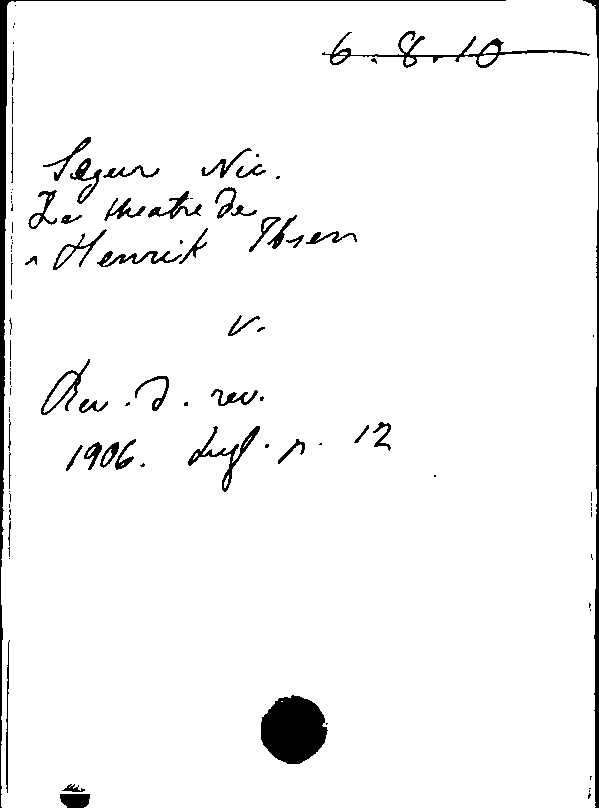 6.8.10
Segur Nic.
Le theatre de
Henrik Ibsen
v.
Rev. d. rev.
1906. Lugl. p. 12